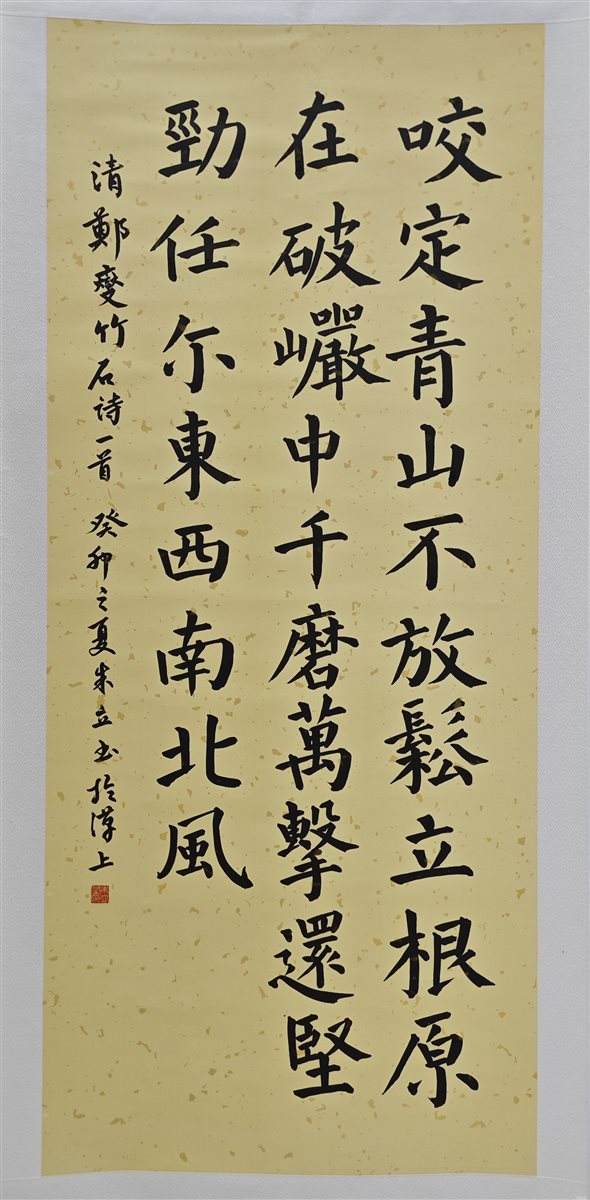 咬定青山不放鬆立根原
在破巗中千磨萬擊還堅
勁任尔東西南北風
清鄭燮竹石诗一首 癸卯之夏朱立书於漳上